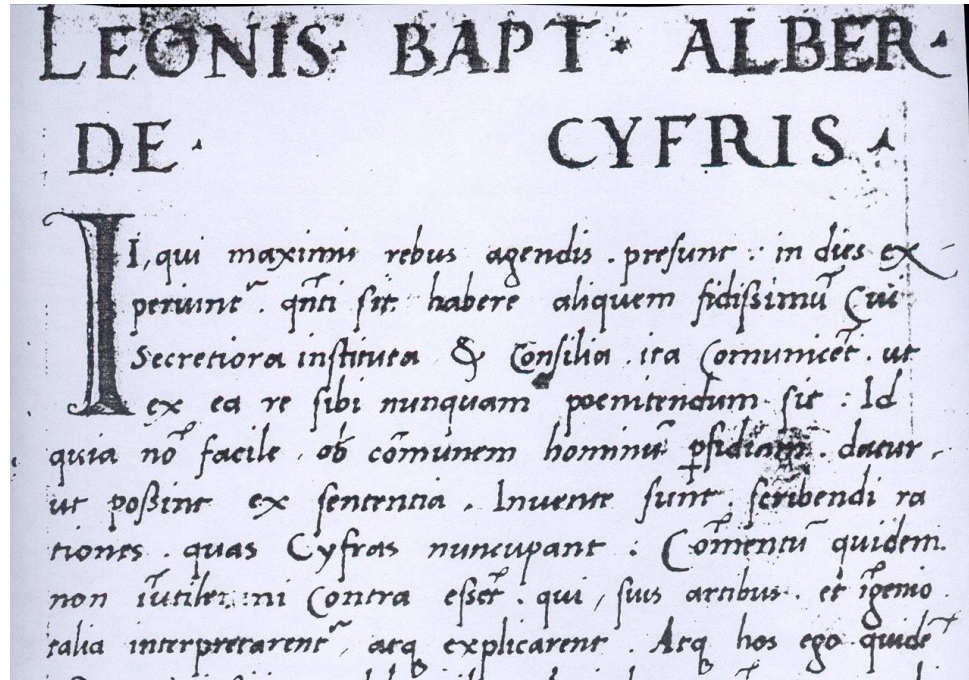 LEONIS· BAPT· ALBER·
DE· CYFRIS·
II, qui maximis rebus agendis . presunt : in dies ex
periunt᷒ . qñti sit . habere aliquem fidissimū Cui
Secretiora instituta & Consilia . ita Comunicēt . ut
ex ea re sibi nunquam poenitendum sit : Id
quia nō facile . ob cōmunem hominū ꝑfidiam . datur ,
ut possint ex sententia . Invente sunt . scribendi ra
tiones . quas Cyfras nuncupant : Cōmentū quidem .
non īutile: ni Contra essēt . qui , suis artibus . et īgenio .
talia interpretarent᷒ , atq explicarent . Atq hos ego quidē